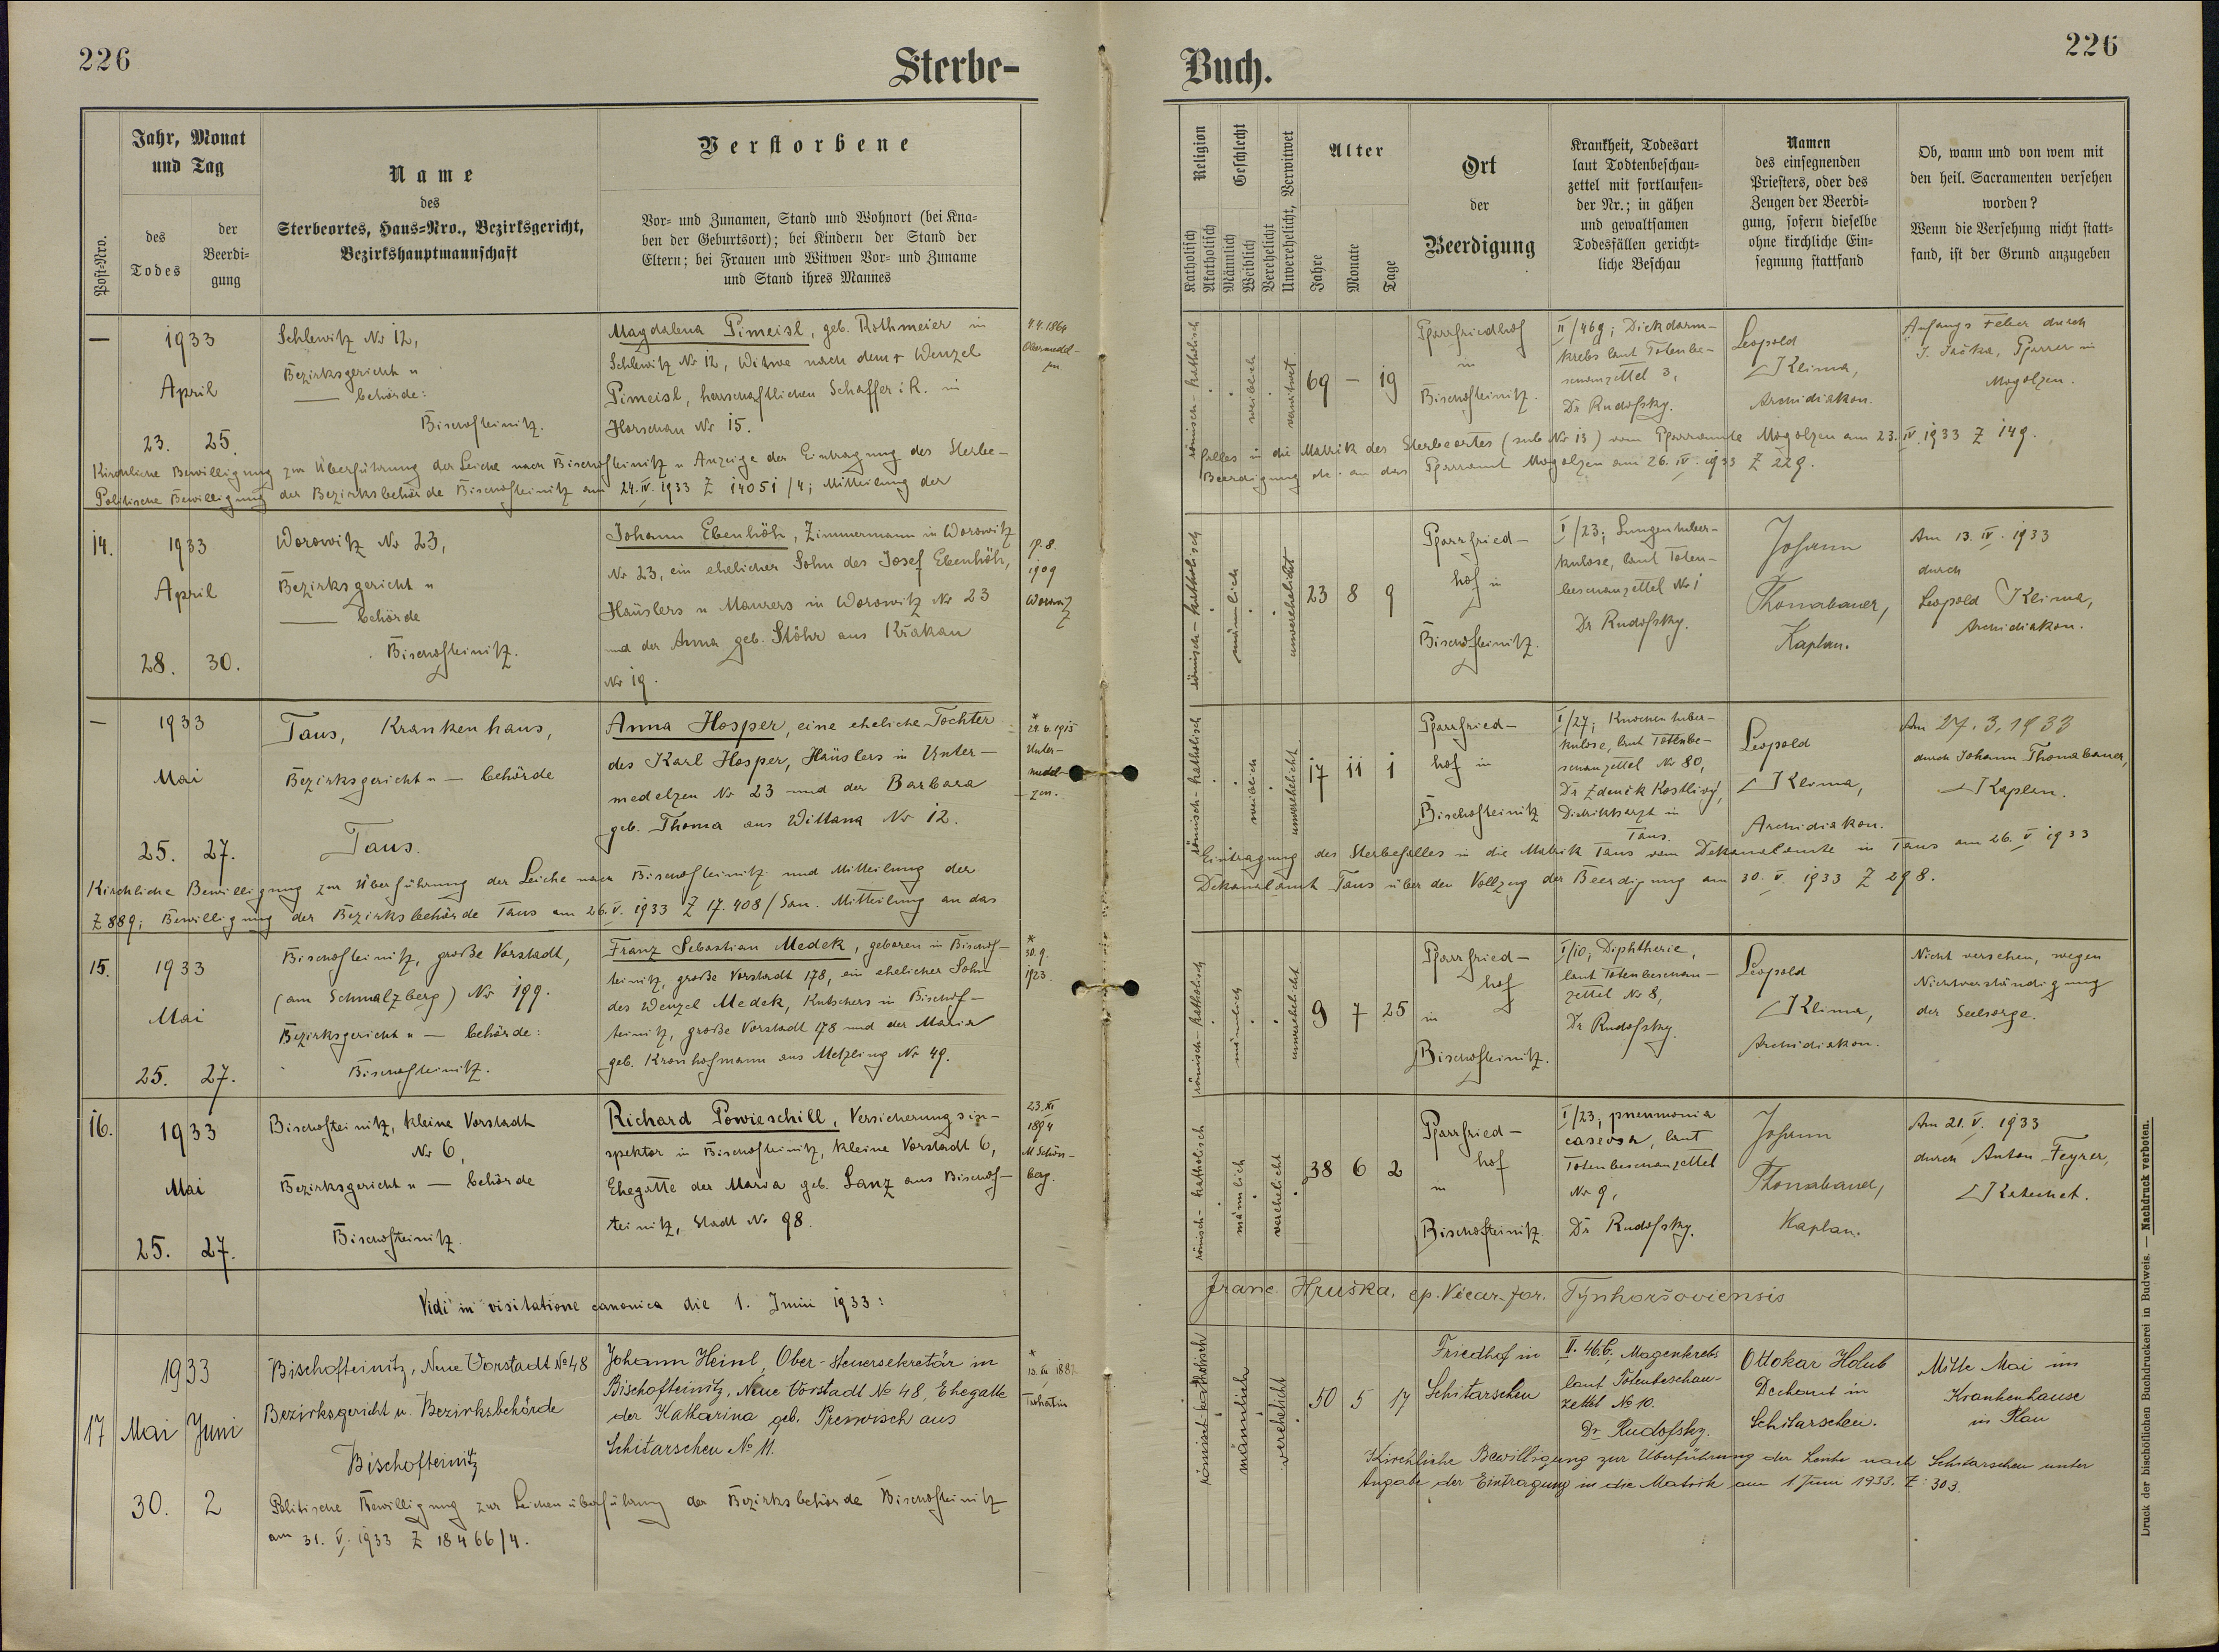 226
Sterbe-
Jahr, Monat
und Tag
Post-Nro.
des
Todes
der
Beerdi-
gung
Name
des
Sterbeortes, Haus-Nro., Bezirksgericht,
Bezirkshauptmannschaft
Verstorbene
Vor- und Zunamen, Stand und Wohnort (bei Kna-
ben der Geburtsort); bei Kindern der Stand der
Eltern; bei Frauen und Witwen Vor- und Zuname
und Stand ihres Mannes
—
1933
April
23. 25.
Schlewitz No 12,
Bezirksgericht u
— behörde:
Bischofteinitz.
Magdalena Pimeisl, geb. Rothmeier in
Schlewitz No 12, Witwe nach dem + Wenzel
Pimeisl, herrschaftlichen Schaffer i R. in
Horschau No 15.
4.4.1864
Kirchliche Bewilligung zur Überführung der Leiche nach Bischofteinitz u Anzeige der Eintragung des Sterbe-
Politische Bewilligung der Bezirksbehörde Bischofteinitz am 24. IV. 1933 Z 14051/4; Mitteilung der
14.
1933
April
28. 30.
Worowitz No 23,
Bezirksgericht u
— behörde
Bischofteinitz.
Johann Ebenhöh, Zimmermann in Worowitz
No 23, ein ehelicher Sohn des Josef Ebenhöh,
Häuslers u Maurers in Worowitz No 23
und der Anna geb. Stöhr aus Křakau
No 19.
19.8.
1909
Worowitz
—
1933
Mai
25. 27.
Taus, Krankenhaus,
Bezirksgericht u — behörde
Taus.
Anna Hosper, eine eheliche Tochter
des Karl Hosper, Häuslers in Unter-
medelzen No 23 und der Barbara
geb. Thoma aus Wittana No 12.
*
24.6.1915
Unter-
medel-
zen.
Kirchliche Bewilligung zur Überführung der Leiche nach Bischofteinitz und Mitteilung der
Z 889; Bewilligung der Bezirksbehörde Taus am 26. V. 1933 Z 17.408/San. Mitteilung an das
15.
1933
Mai
25. 27.
Bischofteinitz, große Vorstadt,
(am Schmalzberg) No 199.
Bezirksgericht u — behörde:
Bischofteinitz.
Franz Sebastian Medek, geboren in Bischof-
teinitz, große Vorstadt 178, ein ehelicher Sohn
des Wenzel Medek, Kutschers in Bischof-
teinitz, große Vorstadt 178 und der Maria
geb. Kronhofmann aus Metzling No 49.
*
30.9.
1923.
16.
1933
Mai
25. 27.
Bischofteinitz, kleine Vorstadt
No 6,
Bezirksgericht u — behörde
Bischofteinitz.
Richard Powieschill, Versicherungsin-
spektor in Bischofteinitz, kleine Vorstadt 6,
Ehegatte der Maria geb. Lanz aus Bischof-
teinitz, Stadt No 98.
23. XI
1894
M Schön-
berg.
Vidi in visitatione canonica die 1. Junii 1933:
1933
17 Mai Juni
30. 2
Bischofteinitz, Neue Vorstadt No 48
Bezirksgericht u. Bezirksbehörde
Bischofteinitz
Johann Heinl, Ober-Steuersekretär in
Bischofteinitz, Neue Vorstadt No 48, Ehegatte
der Katharina geb. Preiwisch aus
Schitarschen No 11.
*
1882
Politische Bewilligung zur Leichenüberführung der Bezirksbehörde Bischofteinitz
am 31. V. 1933 Z 18466/4.
Buch.
226
Religion
Katholisch
Akatholisch
Geschlecht
Männlich
Weiblich
Verehelicht
Unverehelicht, Verwitwet
Alter
Jahre
Monate
Tage
Ort
der
Beerdigung
Krankheit, Todesart
laut Todtenbeschau-
zettel mit fortlaufen-
der Nr.; in gähen
und gewaltsamen
Todesfällen gericht-
liche Beschau
Namen
des einsegnenden
Priesters, oder des
Zeugen der Beerdi-
gung, sofern dieselbe
ohne kirchliche Ein-
segnung stattfand
Ob, wann und von wem mit
den heil. Sacramenten versehen
worden?
Wenn die Versehung nicht statt-
fand, ist der Grund anzugeben
römisch-katholisch
weiblich
verwitwet
69 — 19
Pfarrfriedhof
in
Bischofteinitz.
II/469; Dickdarm-
krebs laut Totenbe-
schauzettel 3,
Dr Rudofsky.
Leopold
Klima,
Archidiakon.
Anfangs Feber durch
Pfarrer in
Mogolzen.
falles in die Matrik des Sterbeortes (sub No 13) vom Pfarramte Mogolzen am 23. IV. 1933 Z 149.
Beerdigung etc. an das Pfarramt Mogolzen am 26. IV. 1933 Z 229.
römisch-katholisch
männlich
unverehelicht
23 8 9
Pfarrfried-
hof in
Bischofteinitz.
I/23; Lungentuber-
kulose, laut Toten-
beschauzettel No 1
Dr Rudofsky.
Johann
Thomabauer,
Kaplan.
Am 13. IV. 1933
durch
Leopold Klima,
Archidiakon.
römisch-katholisch
weiblich
unverehelicht
17 11 1
Pfarrfried-
hof in
Bischofteinitz
I/27; Knochentuber-
kulose, laut Totenbe-
schauzettel No 80,
Dr Zdenik Kostlivý,
Distriktsarzt in
Taus.
Leopold
Klima,
Archidiakon.
Am 27.3.1933
durch Johann Thomabauer,
Kaplan.
Eintragung des Sterbefalles in die Matrik Taus vom Dekanalamte in Taus am 26. V 1933
Dekanalamt Taus über den Vollzug der Beerdigung am 30. V. 1933 Z 298.
römisch-katholisch
männlich
unverehelicht
9 7 25
Pfarrfried-
hof
in
Bischofteinitz.
I/10; Diphtherie,
laut Totenbeschau-
zettel No 8,
Dr Rudofsky.
Leopold
Klima,
Archidiakon.
Nicht versehen, wegen
Nichtverständigung
der Seelsorge.
römisch-katholisch
männlich
verehelicht
38 6 2
Pfarrfried-
hof
in
Bischofteinitz
I/23; pneumonia
caseosa, laut
Totenbeschauzettel
No 9,
Dr Rudofsky.
Johann
Thomabauer,
Kaplan.
Am 21. V. 1933
durch Anton Feyrer,
Katechet.
Franc. Hruška, ep. Vicar. for. Týnhoršoviensis
römisch-katholisch
männlich
verehelicht
50 5 17
Friedhof in
Schitarschen
II. 46.b; Magenkrebs
laut Totenbeschau-
zettel No 10.
Dr Rudofsky.
Ottokar Holub
Dechant in
Schitarschen.
Mitte Mai im
Krankenhause
in Plan
Kirchliche Bewilligung zur Überführung der Leiche nach Schitarschen unter
Angabe der Eintragung in die Matrik am 1 Juni 1933. Z: 303.
Druck der bischöflichen Buchdruckerei in Budweis. — Nachdruck verboten.